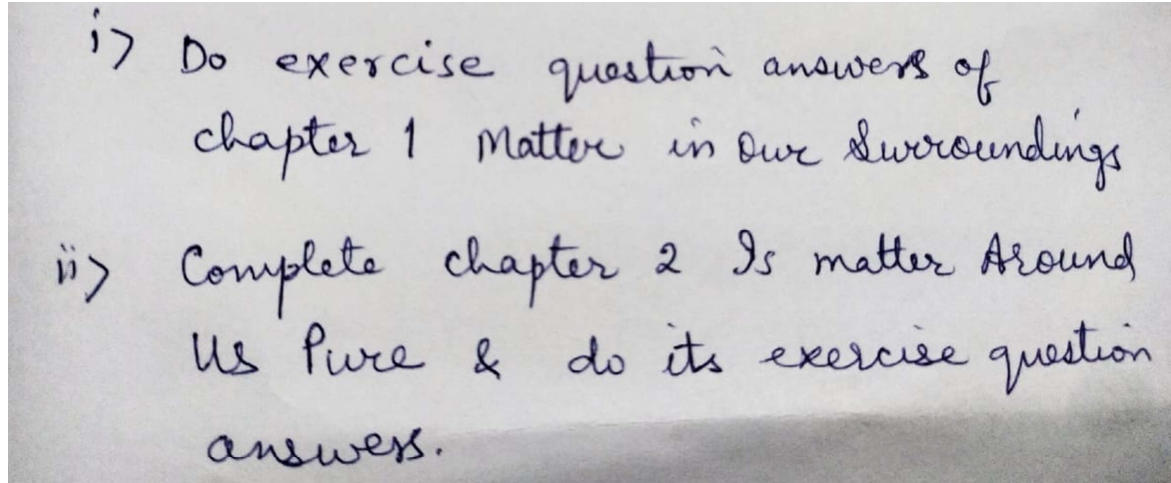 i> Do exercise question answers of
chapter 1 Matter in Our Surroundings
ii> Complete chapter 2 Is matter Around
Us Pure & do its exercise question
answers.